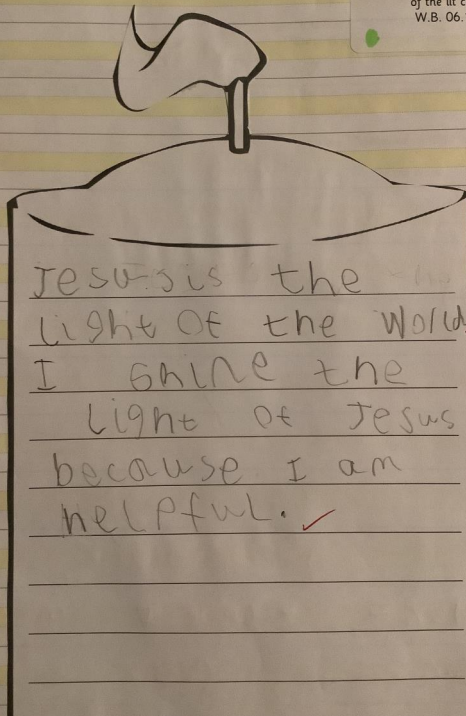 of the lit c
W.B. 06.
Jesus is the
light of the world
I shine the
light of Jesus
because I am
helpful.